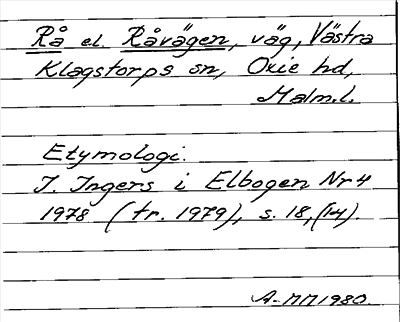 Rå el. Råvägen, väg, Västra
Klagstorps sn, Oxie hd,
Malm.l.
Etymologi.
I. Ingers i Elbogen Nr 4
1978 (tr. 1979), s. 18, (14).
A-MM 1980.